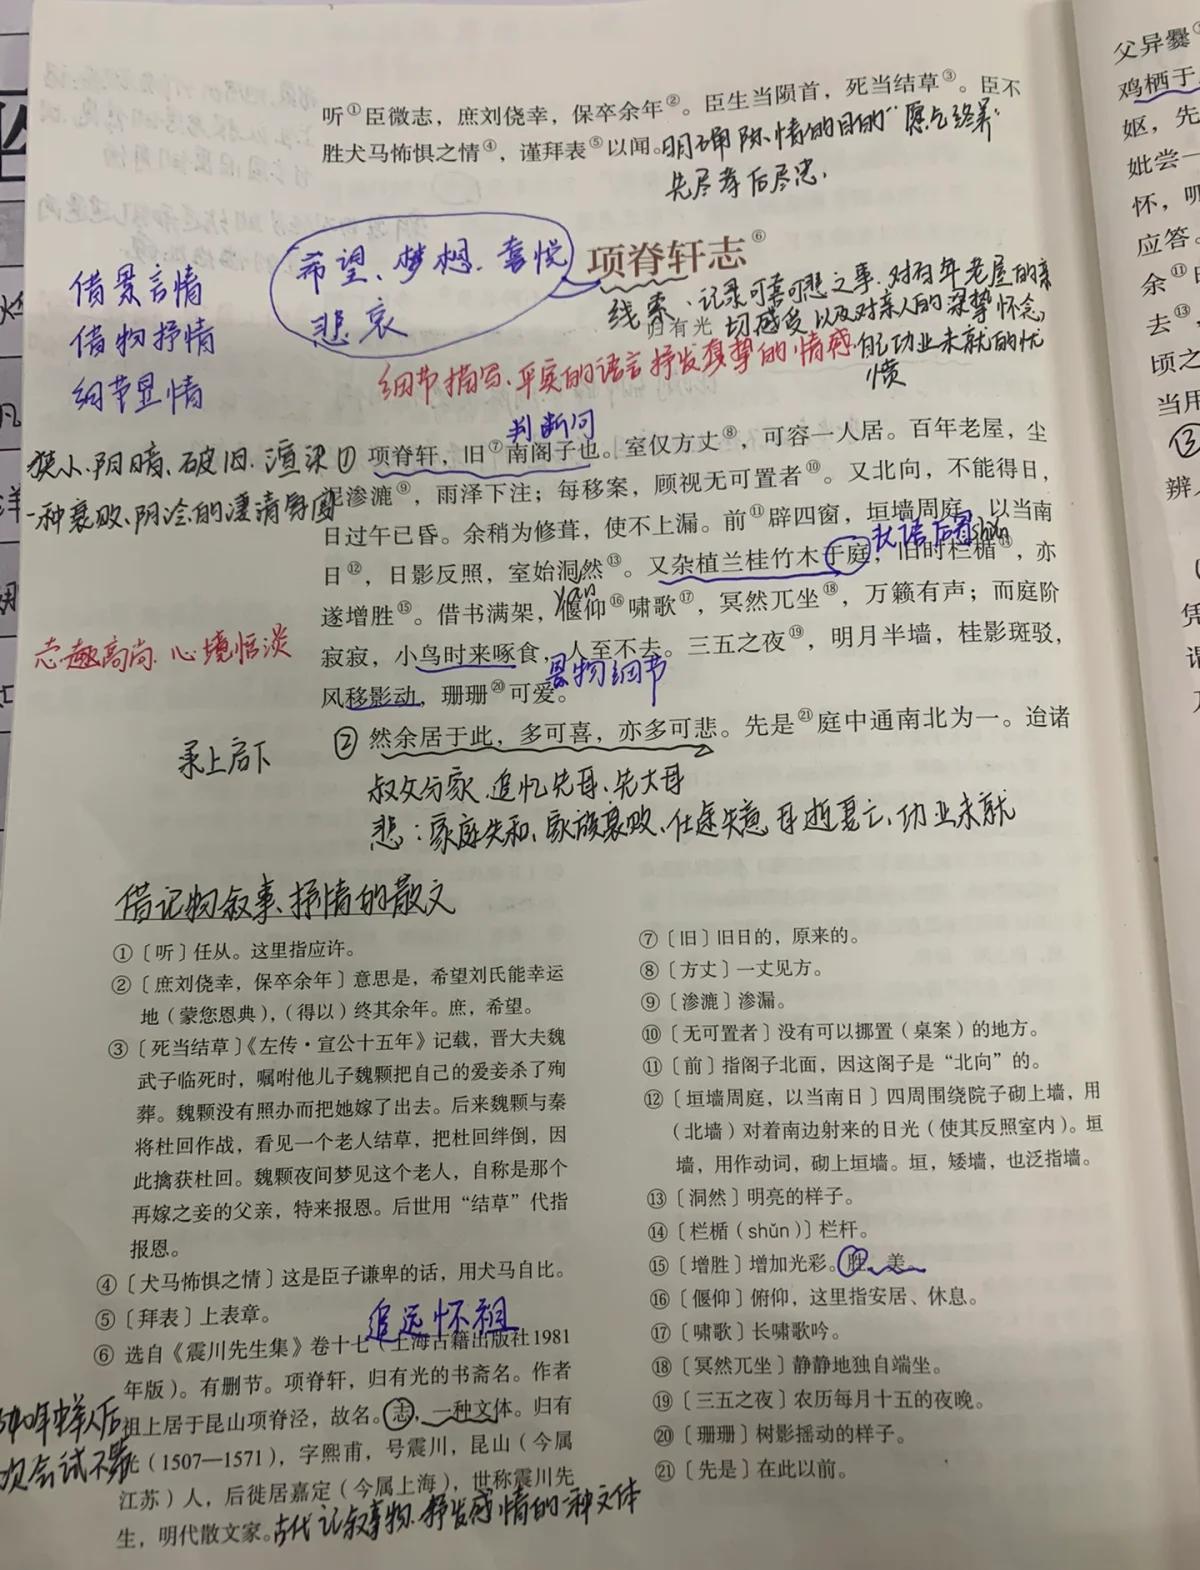 听①臣微志，庶刘侥幸，保卒余年②。臣生当陨首，死当结草③。臣不
胜犬马怖惧之情④，谨拜表⑤以闻。明确陈情的目的"愿乞终养"
先尽孝后尽忠.
希望、梦想、喜悦
悲哀
项脊轩志⑥
借景言情
借物抒情
细节显情
线索、记录可喜可悲之事.对百年老屋的亲
归有光 切感受以及对亲人的深挚怀念,
细节描写、平实的语言抒发真挚的情感 自己功业未就的忧
愤
判断句
狭小.阴暗、破旧.渲染
一种衰败、阴冷的凄清氛围
① 项脊轩，旧⑦南阁子也。室仅方丈⑧，可容一人居。百年老屋，尘
泥渗漉⑨，雨泽下注；每移案，顾视无可置者⑩。又北向，不能得日，
日过午已昏。余稍为修葺，使不上漏。前⑪辟四窗，垣墙周庭，以当南
状语后置 shǔn
日⑫，日影反照，室始洞然⑬。又杂植兰桂竹木于庭，旧时栏楯⑭，亦
yǎn
遂增胜⑮。借书满架，偃仰⑯啸歌⑰，冥然兀坐⑱，万籁有声；而庭阶
寂寂，小鸟时来啄食，人至不去。三五之夜⑲，明月半墙，桂影斑驳，
志趣高尚、心境恬淡
景物细节
风移影动，珊珊⑳可爱。
承上启下
② 然余居于此，多可喜，亦多可悲。先是㉑庭中通南北为一。迨诸
叔父分家、追忆先母、先大母
悲：家庭失和、家族衰败、仕途失意 母逝妻亡、功业未就
借记物叙事、抒情的散文
①〔听〕任从。这里指应许。
②〔庶刘侥幸，保卒余年〕意思是，希望刘氏能幸运
地（蒙您恩典），（得以）终其余年。庶，希望。
③〔死当结草〕《左传·宣公十五年》记载，晋大夫魏
武子临死时，嘱咐他儿子魏颗把自己的爱妾杀了殉
葬。魏颗没有照办而把她嫁了出去。后来魏颗与秦
将杜回作战，看见一个老人结草，把杜回绊倒，因
此擒获杜回。魏颗夜间梦见这个老人，自称是那个
再嫁之妾的父亲，特来报恩。后世用"结草"代指
报恩。
④〔犬马怖惧之情〕这是臣子谦卑的话，用犬马自比。
⑤〔拜表〕上表章。
追远怀祖
⑥ 选自《震川先生集》卷十七（上海古籍出版社1981
年版）。有删节。项脊轩，归有光的书斋名。作者
祖上居于昆山项脊泾，故名。志，一种文体。归有
光（1507—1571），字熙甫，号震川，昆山（今属
江苏）人，后徙居嘉定（今属上海），世称震川先
生，明代散文家。古代记叙事物、抒发感情的一种文体
年中举人后
次会试不第
⑦〔旧〕旧日的，原来的。
⑧〔方丈〕一丈见方。
⑨〔渗漉〕渗漏。
⑩〔无可置者〕没有可以挪置（桌案）的地方。
⑪〔前〕指阁子北面，因这阁子是"北向"的。
⑫〔垣墙周庭，以当南日〕四周围绕院子砌上墙，用
（北墙）对着南边射来的日光（使其反照室内）。垣
墙，用作动词，砌上垣墙。垣，矮墙，也泛指墙。
⑬〔洞然〕明亮的样子。
⑭〔栏楯（shǔn）〕栏杆。
⑮〔增胜〕增加光彩。胜，美。
⑯〔偃仰〕俯仰，这里指安居、休息。
⑰〔啸歌〕长啸歌吟。
⑱〔冥然兀坐〕静静地独自端坐。
⑲〔三五之夜〕农历每月十五的夜晚。
⑳〔珊珊〕树影摇动的样子。
㉑〔先是〕在此以前。
父异爨
鸡栖于
妪，先
妣尝一
怀，呱
应答。
余⑪
去⑬
顷之
当用
③
辨
凭